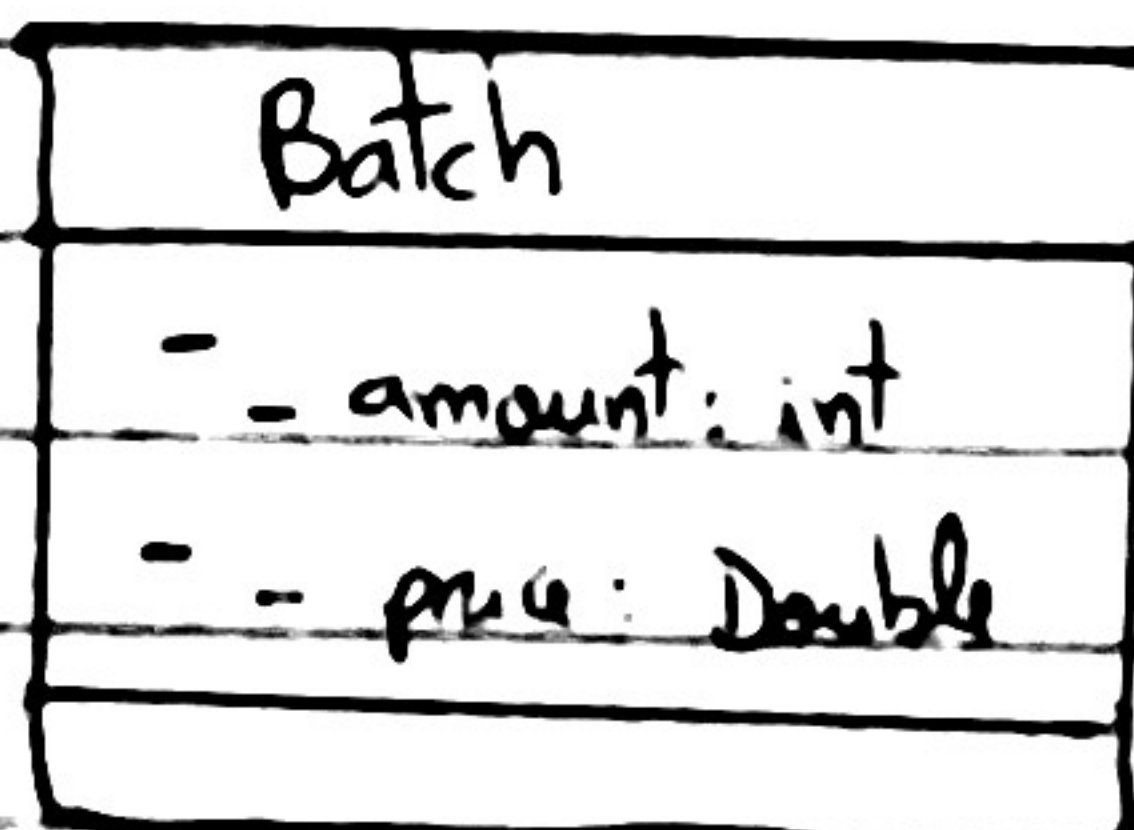 Batch
- - amount: int
- - price: Double